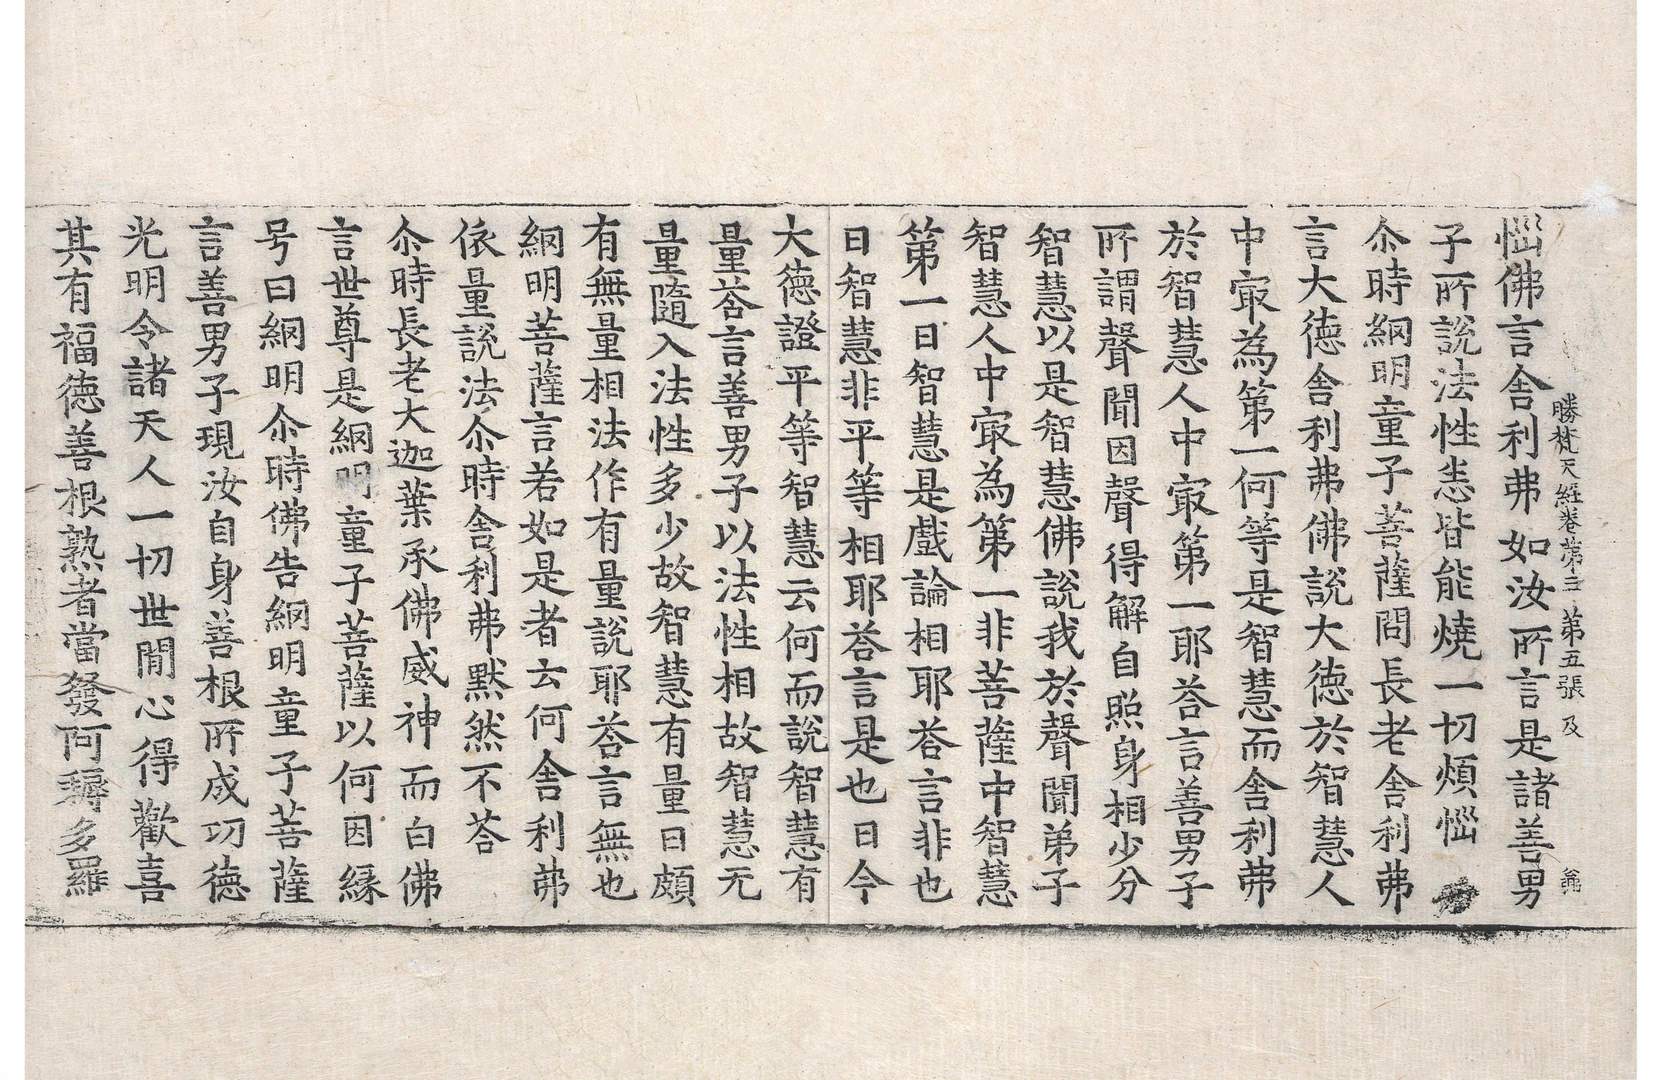 勝梵天經卷第三　第五張　及
惱佛言舍利弗如汝所言是諸善男
子所說法性悉皆能燒一切煩惱
尒時網明童子菩薩問長老舍利弗
言大德舍利弗佛說大德於智慧人
中㝡為第一何等是智慧而舍利弗
於智慧人中㝡第一耶荅言善男子
所謂聲聞因聲得解自照身相少分
智慧以是智慧佛說我於聲聞弟子
智慧人中㝡為第一非菩薩中智慧
第一曰智慧是戲論相耶荅言非也
曰智慧非平等相耶荅言是也曰今
大德證平等智慧云何而說智慧有
量荅言善男子以法性相故智慧无
量隨入法性多少故智慧有量曰頗
有無量相法作有量說耶荅言無也
網明菩薩言若如是者云何舍利弗
依量說法尒時舍利弗默然不荅
尒時長老大迦葉承佛威神而白佛
言世尊是網明童子菩薩以何因縁
号曰網明尒時佛告網明童子菩薩
言善男子現汝自身善根所成功德
光明令諸天人一切世間心得歡喜
其有福德善根熟者當發阿耨多羅